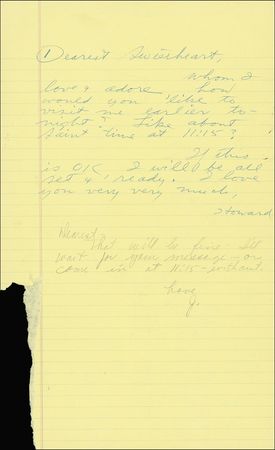 ① Dearest Sweetheart,
Whom I
love & adore how
would you like to
visit me earlier to-
night? Like about
saint time at 11:15?
If this
is OK I will be all
set & ready. I love
you very very much,
Howard
Dearest,
That will be fine - I'll
wait for your message - or
come in at 11:15 - without.
Love
J.